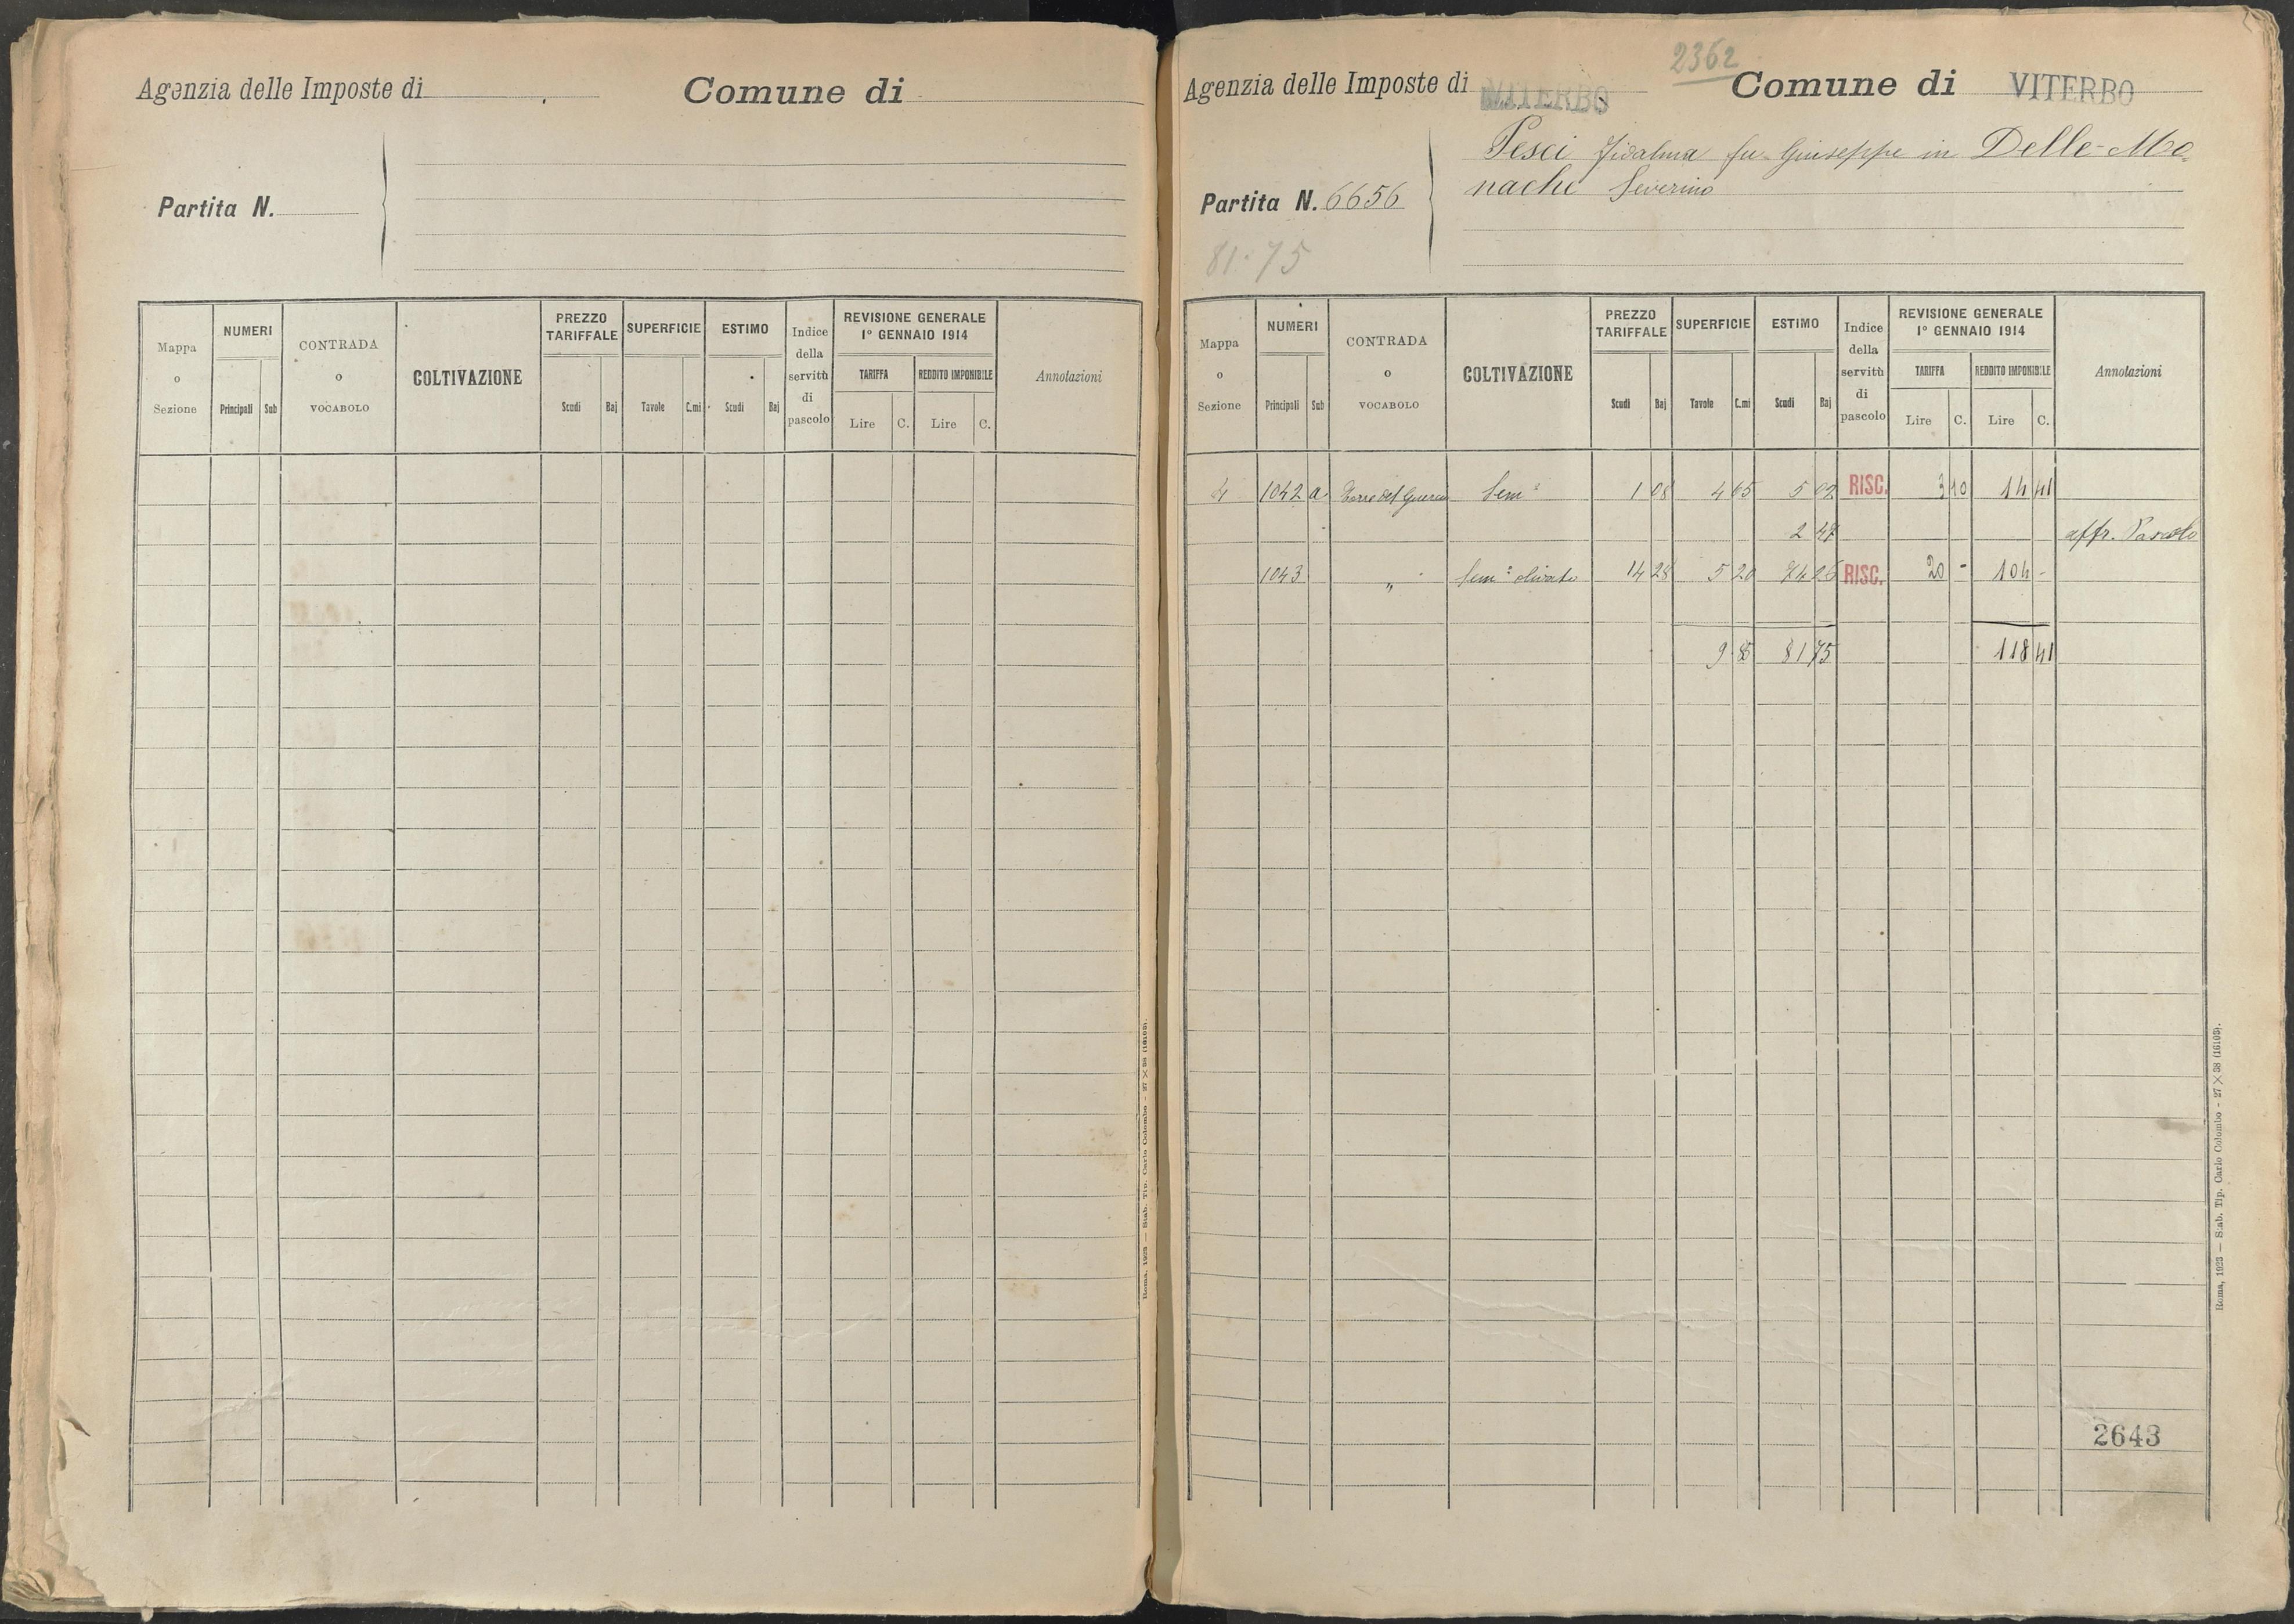 Agenzia delle Imposte di
Comune di
Partita N.
Mappa o Sezione
NUMERI
Principali Sub
CONTRADA o VOCABOLO
COLTIVAZIONE
PREZZO TARIFFALE
Scudi Baj
SUPERFICIE
Tavole C.mi
ESTIMO
Scudi Baj
Indice della servitù di pascolo
REVISIONE GENERALE
1° GENNAIO 1914
TARIFFA REDDITO IMPONIBILE
Lire C. Lire C.
Annotazioni
Roma, 1923 — Stab. Tip. Carlo Colombo - 27 × 38 (16103).
2362
Agenzia delle Imposte di VITERBO Comune di VITERBO
Pesci Fidalma fu Giuseppe in Delle-Mo
nache Severino
Partita N. 6656
81.75
Mappa o Sezione
NUMERI
Principali Sub
CONTRADA o VOCABOLO
COLTIVAZIONE
PREZZO TARIFFALE
Scudi Baj
SUPERFICIE
Tavole C.mi
ESTIMO
Scudi Baj
Indice della servitù di pascolo
REVISIONE GENERALE
1° GENNAIO 1914
TARIFFA REDDITO IMPONIBILE
Lire C. Lire C.
Annotazioni
4 1042 a Sem° 1 08 4 65 5 02 RISC. 3 10 14 41
2 47 affr. Pascolo
1043 " Sem° olivato 14 28 5 20 74 26 RISC. 20 - 104 -
9 85 81 75 118 41
2643
Roma, 1923 — Stab. Tip. Carlo Colombo - 27 × 38 (16103).